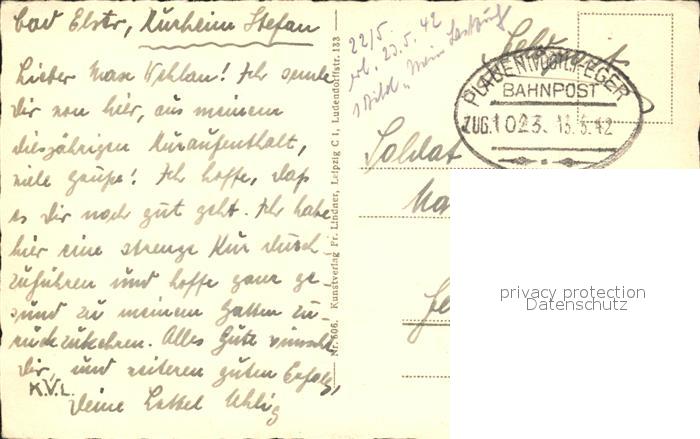 Bad Elstr, Kurheim Stefan
Lieber Max Wehlan! Ich sende
Dir von hier, aus meinem
diesjährigen Kuraufenthalt,
viele Grüße! Ich hoffe, daß
es Dir noch gut geht. Ich habe
hier eine strenge Kur durch-
zuführen und hoffe ganz ge-
sund zu meinem Gatten zu-
rückzukehren. Alles Gute wünscht
Dir, und weiteren guten Erfolg,
Deine Uhlig
K.V.L.
Nr. 606, Kunstverlag Fr. Lindner, Leipzig C 1, Ludendorffstr. 133
22/5.
erh. 23.5.42
1 Bild "Mein
Feldpost
PLAUEN (VOGTL)-EGER
BAHNPOST
ZUG 1023. 13.5.42
Soldat
Ma
privacy protection
Datenschutz